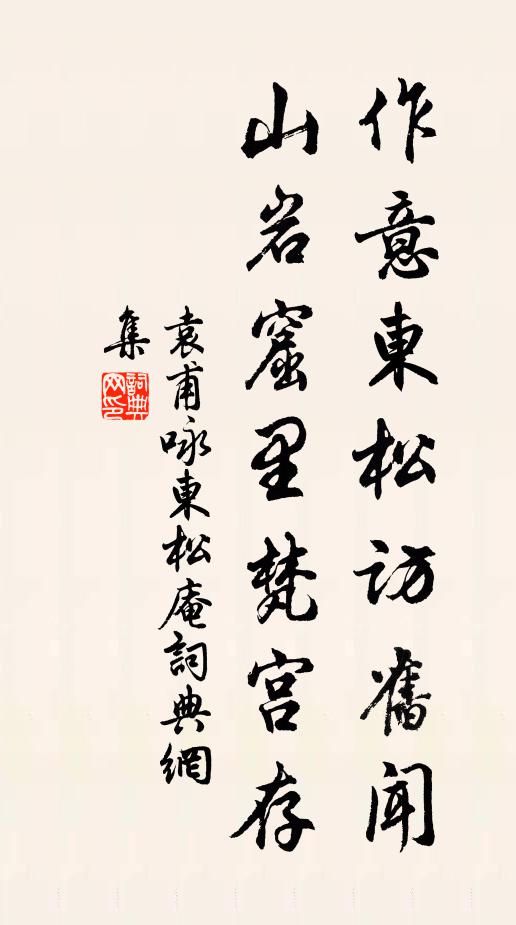 作意東松訪舊聞
山岩窟里梵宫存
袁甫咏東松庵詞典網
集
詞典
网印